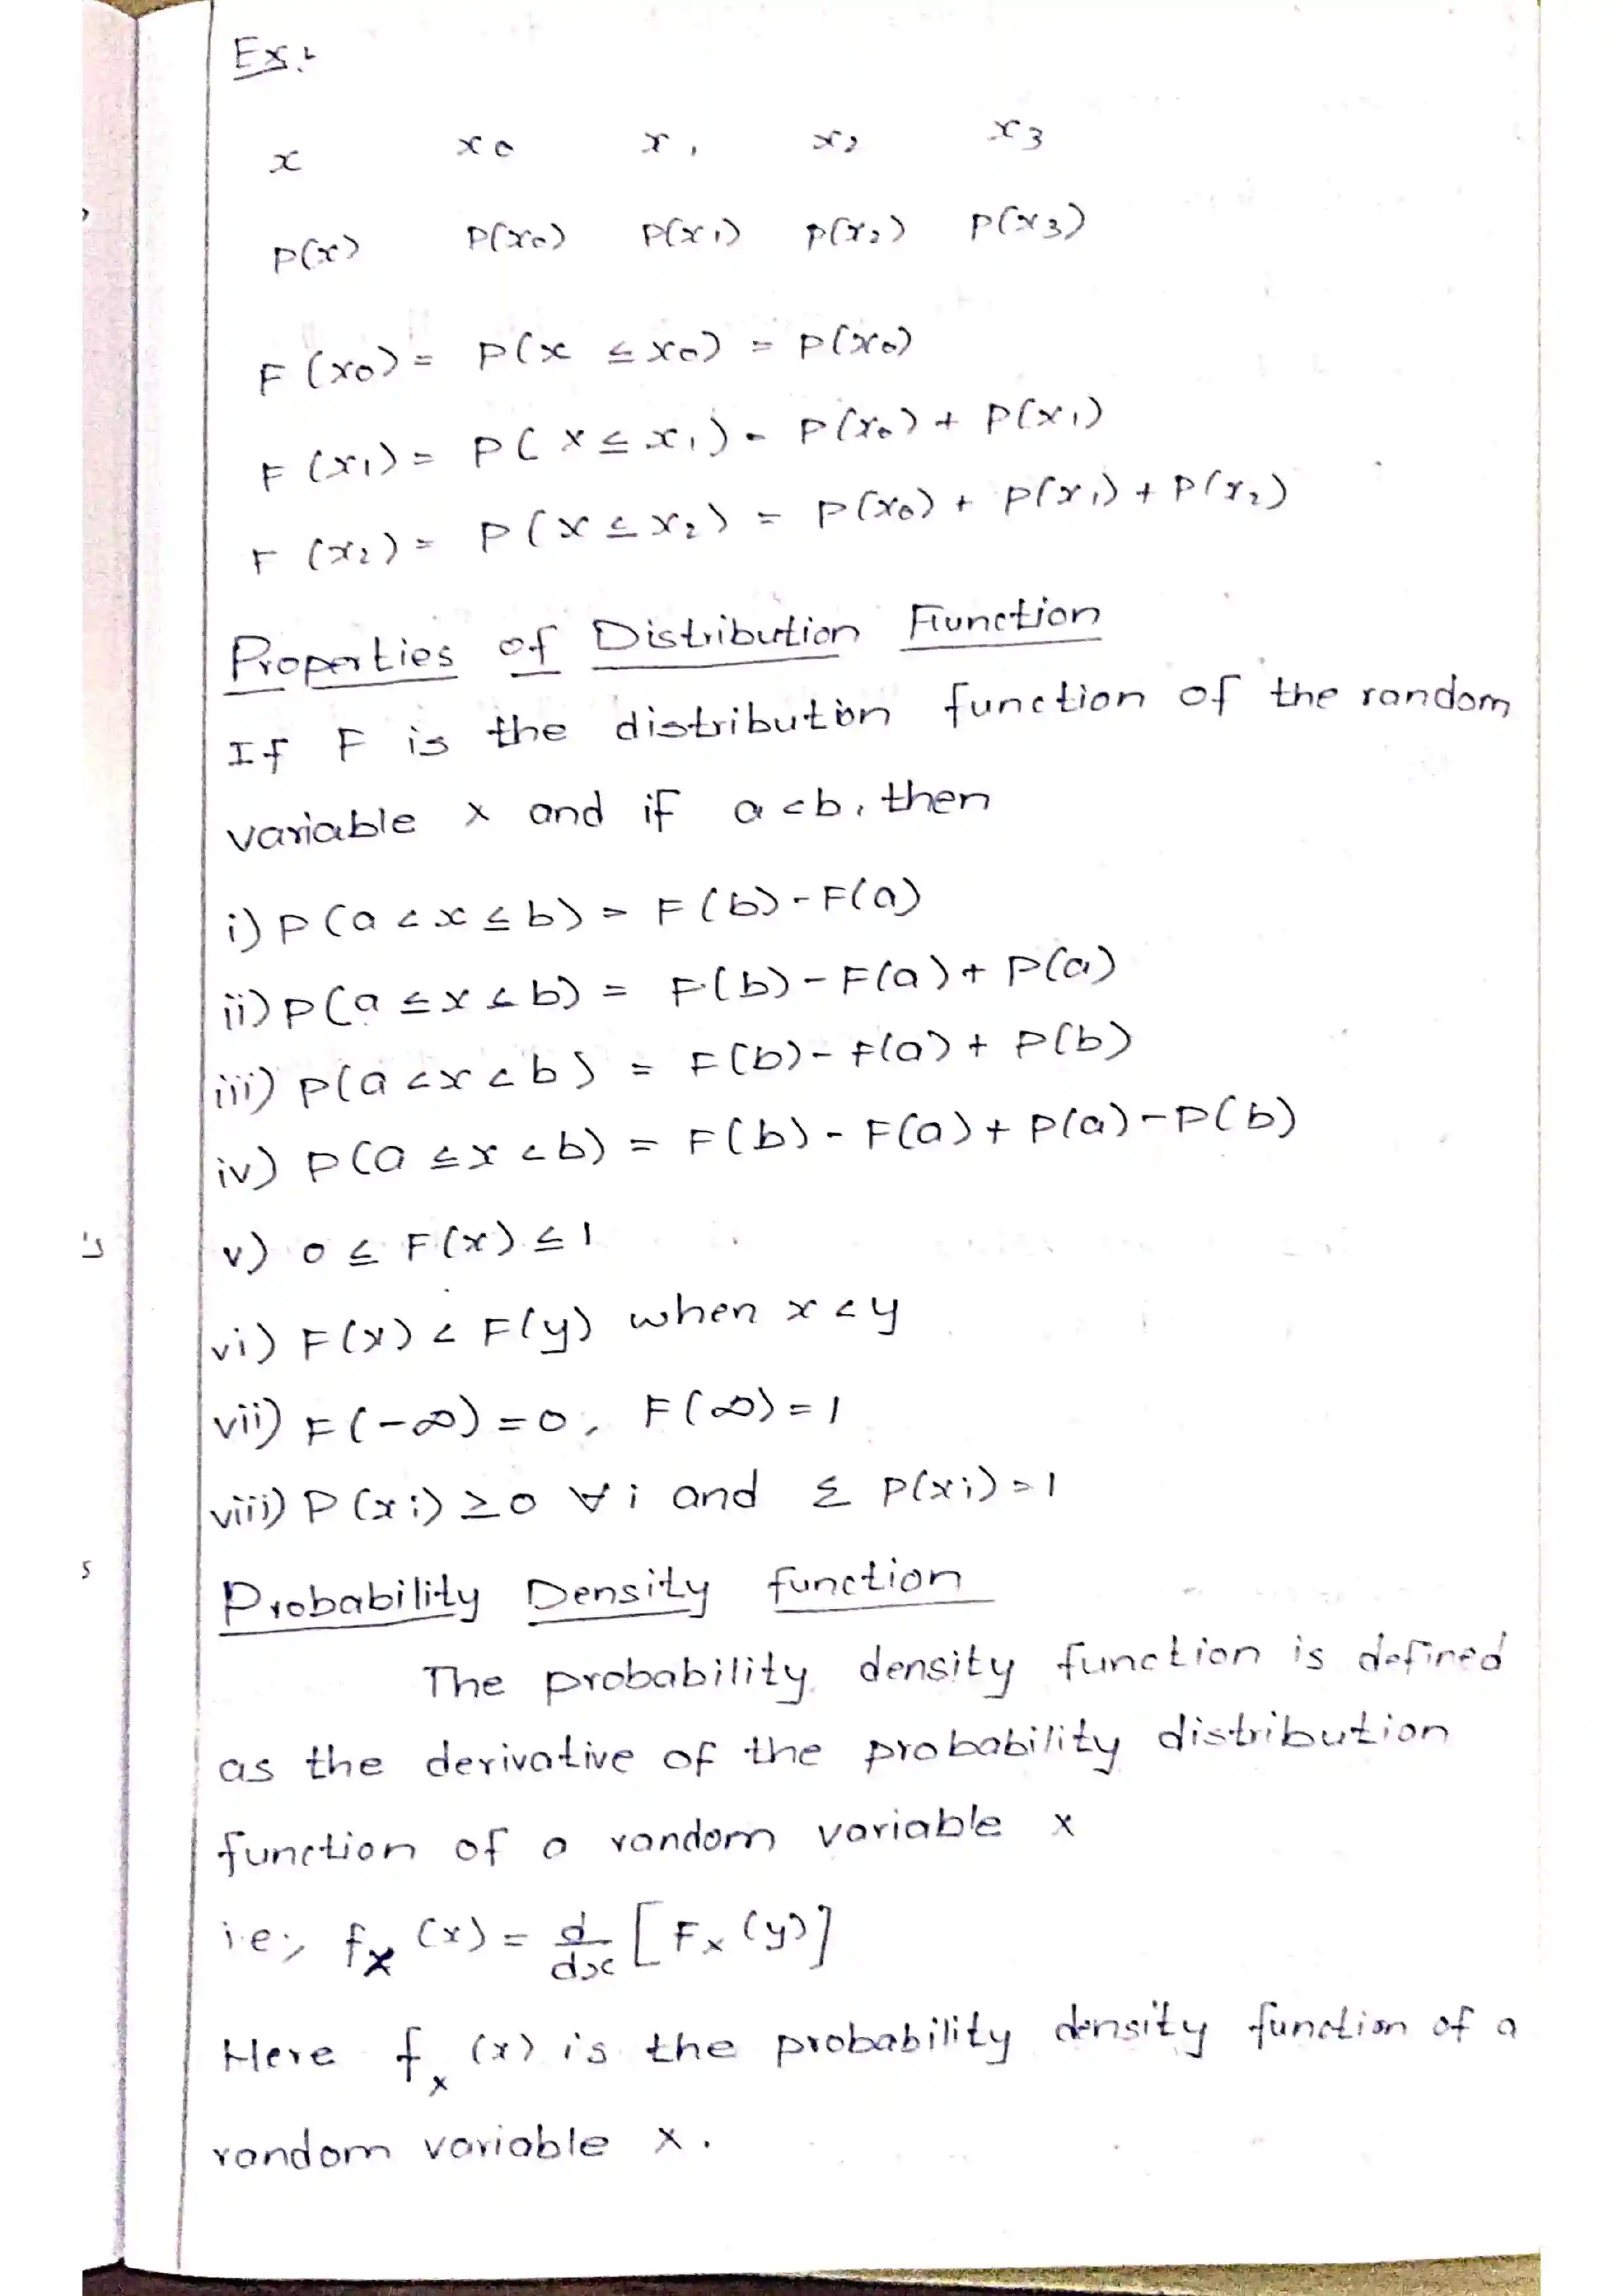 Ex:
x x0 x1 x2 x3
P(x) P(x0) P(x1) P(x2) P(x3)
F(x0) = P(x ≤ x0) = P(x0)
F(x1) = P(X ≤ x1) = P(x0) + P(x1)
F(x2) = P(x ≤ x2) = P(x0) + P(x1) + P(x2)
Properties of Distribution Function
If F is the distribution function of the random
variable X and if a < b, then
i) P(a < x ≤ b) = F(b) - F(a)
ii) P(a ≤ x ≤ b) = F(b) - F(a) + P(a)
iii) P(a < x < b) = F(b) - F(a) + P(b)
iv) P(a ≤ x < b) = F(b) - F(a) + P(a) - P(b)
v) 0 ≤ F(x) ≤ 1
vi) F(x) < F(y) when x < y
vii) F(-∞) = 0, F(∞) = 1
viii) P(xi) ≥ 0 ∀ i and Σ P(xi) = 1
Probability Density function
The probability density function is defined
as the derivative of the probability distribution
function of a random variable X
i.e., fX (x) = d/dx [FX (y)]
Here fX (x) is the probability density function of a
random variable X.